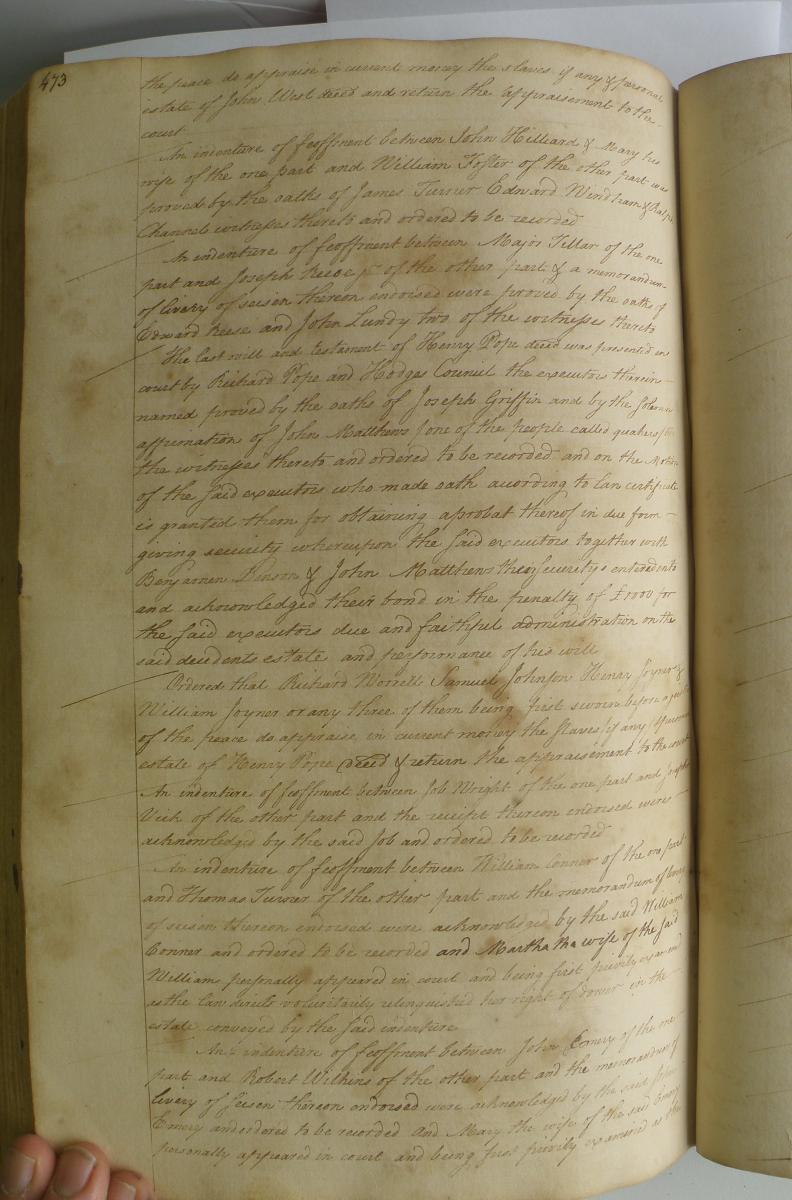 473
the peace do appraise in current money the slaves if any & personal
estate of John West decd and return the appraisement to the
court
An indenture of feoffment between John Hilliard & Mary his
wife of the one part and William Foster of the other part was
proved by the oaths of James Turner Edward Windham & Ralph
Channel witnesses thereto and ordered to be recorded
An indenture of feoffment between Major Tillar of the one
part and Joseph Reese of the other part & a memorandum
of livery of seisen thereon endorsed were proved by the oaths of
Edward Reese and John Lundy two of the witnesses thereto
The last will and testament of Henry Pope decd was presented in
court by Richard Pope and Hodges Council the executors therein
named proved by the oaths of Joseph Griffin and by the solemn
affirmation of John Matthews one of the people called quakers
the witnesses thereto and ordered to be recorded and on the motion
of the said executors who made oath according to law certificate
is granted them for obtaining a probat thereof in due form
giving security whereupon the said executors together with
Benjamen & John Matthews their security entered into
and acknowledged their bond in the penalty of £1000 for
the said executors due and faithful administration on the
said decedents estate and performance of his will
Ordered that Richard Worrell Samuel Johnson Henry Joyner &
William Joyner or any three of them being first sworn before a justice
of the peace do appraise in current money the slaves if any & personal
estate of Henry Pope decd & return the appraisement to the court
An indenture of feoffment between Job Wright of the one part and Joseph
Vick of the other part and the receipt thereon endorsed were
acknowledged by the said Job and ordered to be recorded
An indenture of feoffment between William Connor of the one part
and Thomas Turner of the other part and the memorandum of livery
of seisen thereon endorsed were acknowledged by the said William
Conner and ordered to be recorded and Martha the wife of the said
William personally appeared in court and being first privily examined
as the law directs voluntarily relinquished her right of dower in the
estate conveyed by the said indenture
An indenture of feoffment between John Emery of the one
part and Robert Wilkins of the other part and the memorandum of
livery of seisen thereon endorsed were acknowledged by the said John
Emery and ordered to be recorded and Mary the wife of the said Emery
personally appeared in court and being first privily examined as the